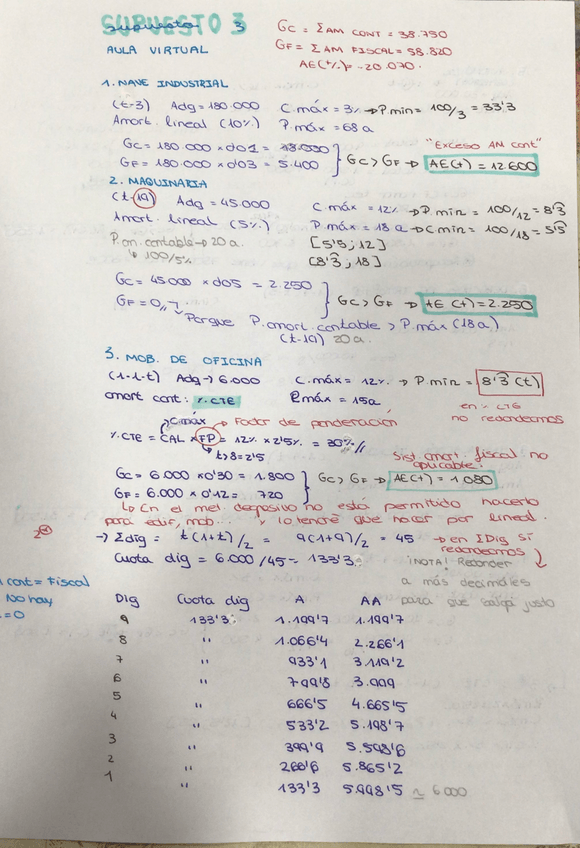 SUPUESTO 3
supuesto 3
AULA VIRTUAL
GC = Σ AM CONT = 38.750
GF = Σ AM FISCAL = 58.820
AE(+/-) = -20.070.
1. NAVE INDUSTRIAL
(t-3) Adq = 180.000 C.máx = 3% → P.min = 100/3 = 33'3
Amort. lineal (10%) P.máx = 68 a
GC = 180.000 x 0'01 = 18.000
GF = 180.000 x 0'03 = 5.400
GC > GF → AE(+) = 12.600
"Exceso AM cont"
2. MAQUINARIA
(t-19) Adq = 45.000 C.máx = 12% → P.min = 100/12 = 8'3
Amort. lineal (5%) P.máx = 18 a → C.min = 100/18 = 5'5
P.am. contable → 20 a. [5'5 ; 12]
↳ 100/5% [8'3 ; 18]
GC = 45.000 x 0'05 = 2.250
GF = 0,,
GC > GF → AE (+) = 2.250
Porque P.amort. contable > P.máx (18a)
(t-19) 20 a.
3. MOB. DE OFICINA
(1-1-t) Adq → 6.000 C.máx = 12% → P.min = 8'3 (t)
amort cont: %CTE P.máx = 15a
en % CTE
no redondeamos
C.máx
Factor de ponderación
%CTE = CAL x FP = 12% x 2'5% = 30%//
↳ t>8 = 2'5
Sist. amort. fiscal no
aplicable.
GC = 6.000 x 0'30 = 1.800
GF = 6.000 x 0'12 = 720
GC > GF → AE(+) = 1080
↳ En el met. degresivo no está permitido hacerlo
para edif, mob... y lo tendré que hacer por lineal.
→ Σdig = t(1+t)/2 = 9(1+9)/2 = 45 → en ΣDig sí
redondeamos
Cuota dig = 6.000/45 = 133'3
¡NOTA! Redondear
a más decimales
para que salga justo
cont = Fiscal
No hay
=0
Dig Cuota dig A AA
9 133'3 1.199'7 1.199'7
8 " 1.066'4 2.266'1
7 " 933'1 3.119'2
6 " 799'8 3.999
5 " 666'5 4.665'5
4 " 533'2 5.198'7
3 " 399'9 5.598'6
2 " 266'6 5.865'2
1 " 133'3 5.998'5 ≃ 6000